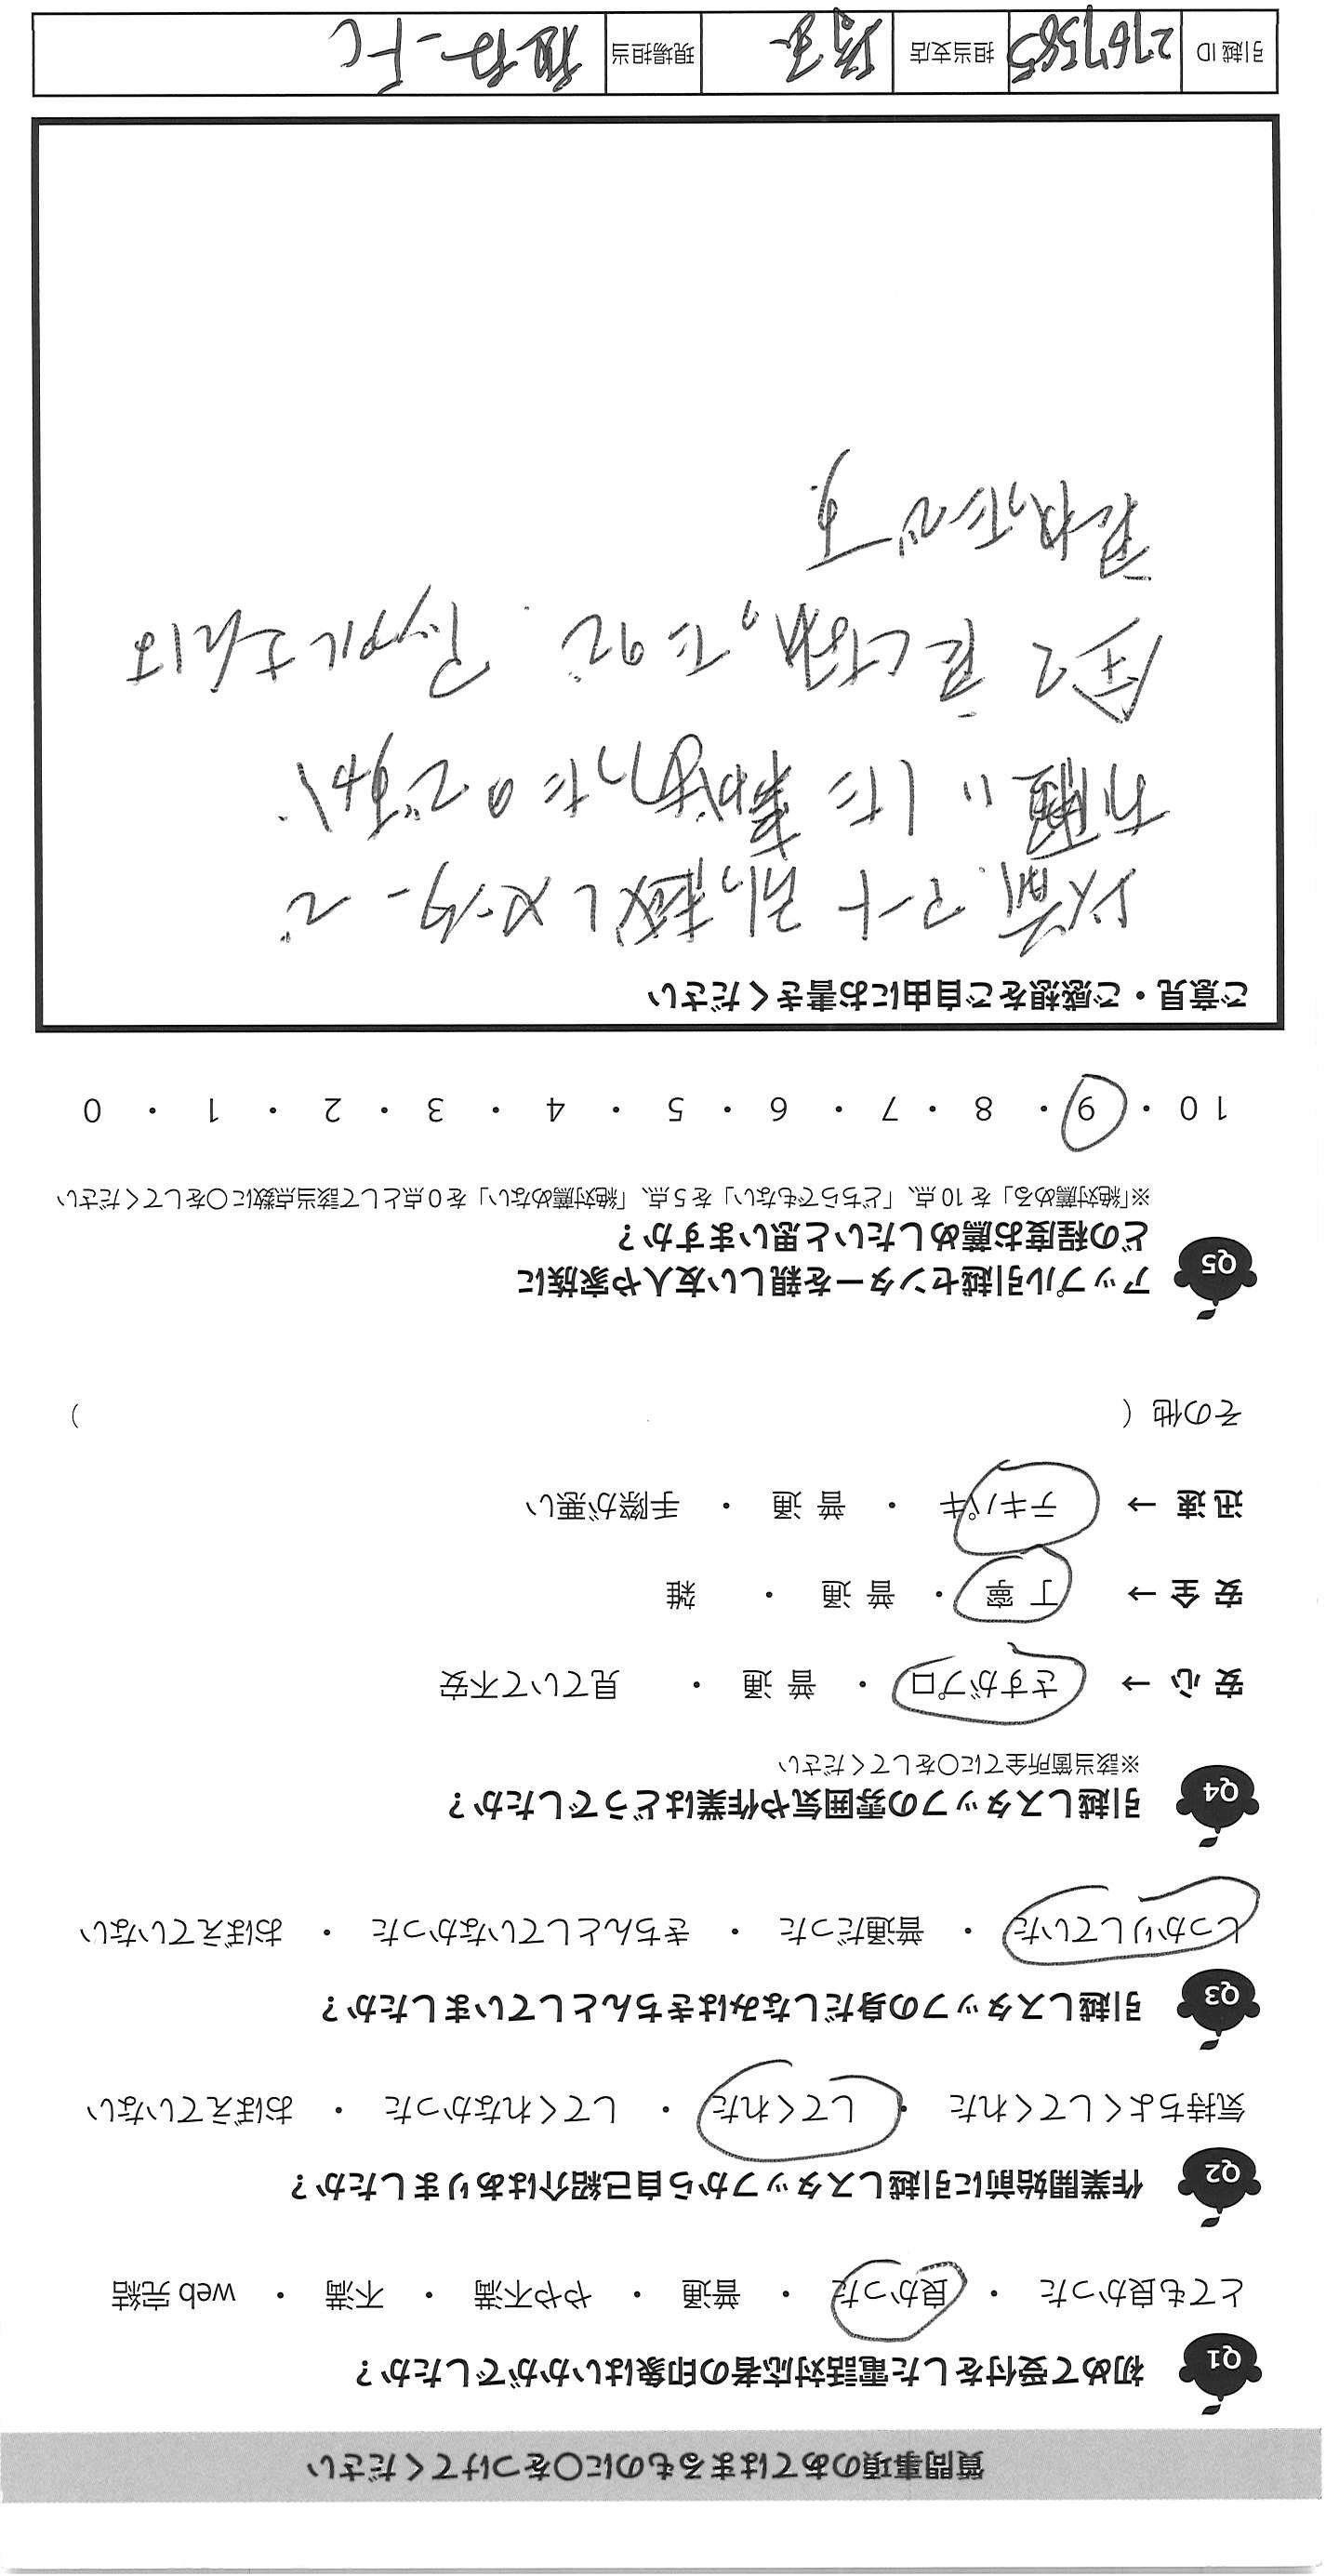 質問事項のあてはまるものに○をつけてください
Q1 初めて受付をした電話対応者の印象はいかがでしたか？
とても良かった ・ 良かった ・ 普通 ・ やや不満 ・ 不満 ・ web 完結
Q2 作業開始前に引越しスタッフから自己紹介はありましたか？
気持ちよくしてくれた ・ してくれた ・ してくれなかった ・ おぼえていない
Q3 引越しスタッフの身だしなみはきちんとしていましたか？
しっかりしていた ・ 普通だった ・ きちんとしていなかった ・ おぼえていない
Q4 引越しスタッフの雰囲気や作業はどうでしたか？
※該当箇所全てに○をしてください
安 心 → さすがプロ ・ 普 通 ・ 見ていて不安
安 全 → 丁 寧 ・ 普 通 ・ 雑
迅 速 → テキパキ ・ 普 通 ・ 手際が悪い
その他（ ）
Q5 アップル引越センターを親しい友人や家族に
どの程度お薦めしたいと思いますか？
※「絶対薦める」を 10 点、「どちらでもない」を 5 点、「絶対薦めない」を 0 点として該当点数に○をしてください
10 ・ 9 ・ 8 ・ 7 ・ 6 ・ 5 ・ 4 ・ 3 ・ 2 ・ 1 ・ 0
ご意見・ご感想をご自由にお書きください
以前、アート引越しセンターで
お願いした事があったのですが、
全て良くなかったので、アップルさんは
良かったです
引越 ID 2767585 担当支店 埼玉 現場担当